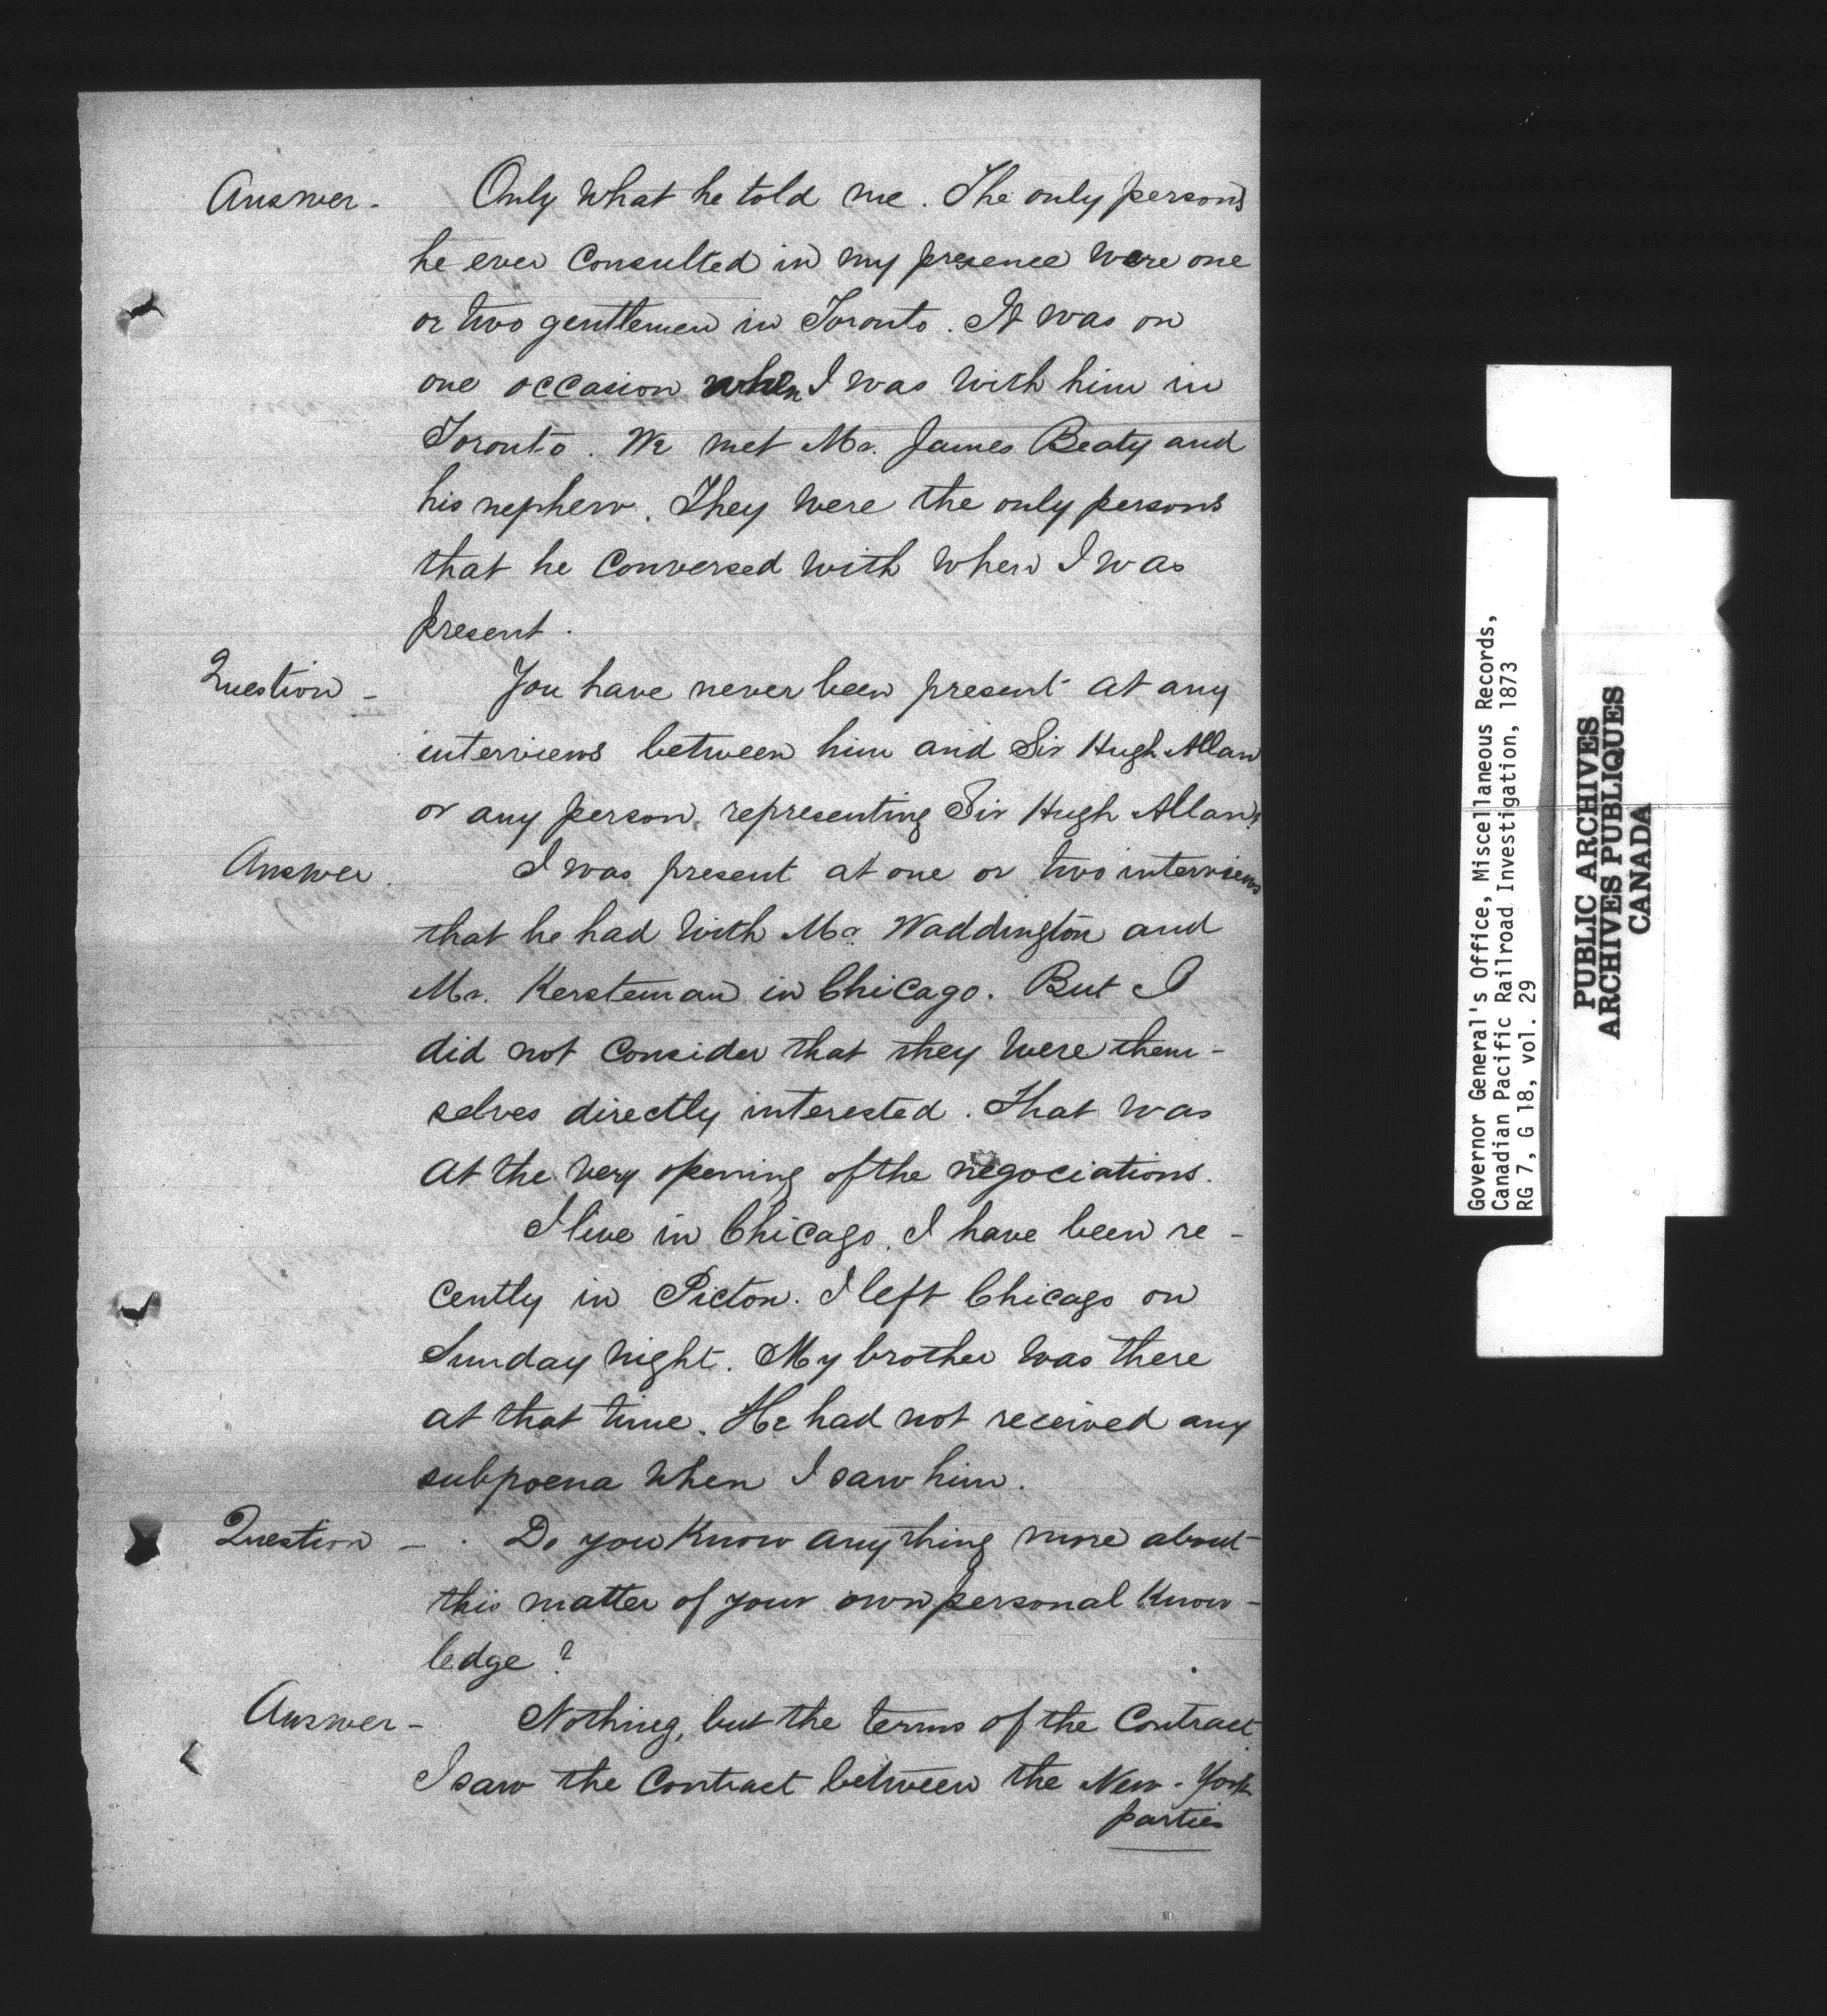 Answer - Only what he told me. The only persons
he ever consulted in my presence were one
or two gentlemen in Toronto. It was on
one occasion when I was with him in
Toronto. We met Mr. James Beaty and
his nephew. They were the only persons
that he conversed with when I was
present.
Question - You have never been present at any
interviews between him and Sir Hugh Allan
or any person representing Sir Hugh Allan?
Answer. I was present at one or two interviews
that he had with Mr. Waddington and
Mr. Kersteman in Chicago. But I
did not consider that they were them-
selves directly interested. That was
at the very opening of the negociations.
I live in Chicago. I have been re-
cently in Picton. I left Chicago on
Sunday night. My brother was there
at that time. He had not received any
subpoena when I saw him.
Question - Do you know anything more about
this matter of your own personal know-
ledge?
Answer - Nothing, but the terms of the Contract.
I saw the Contract between the New-York
parties
Governor General's Office, Miscellaneous Records,
Canadian Pacific Railroad Investigation, 1873
RG 7, G 18, vol. 29
PUBLIC ARCHIVES
ARCHIVES PUBLIQUES
CANADA